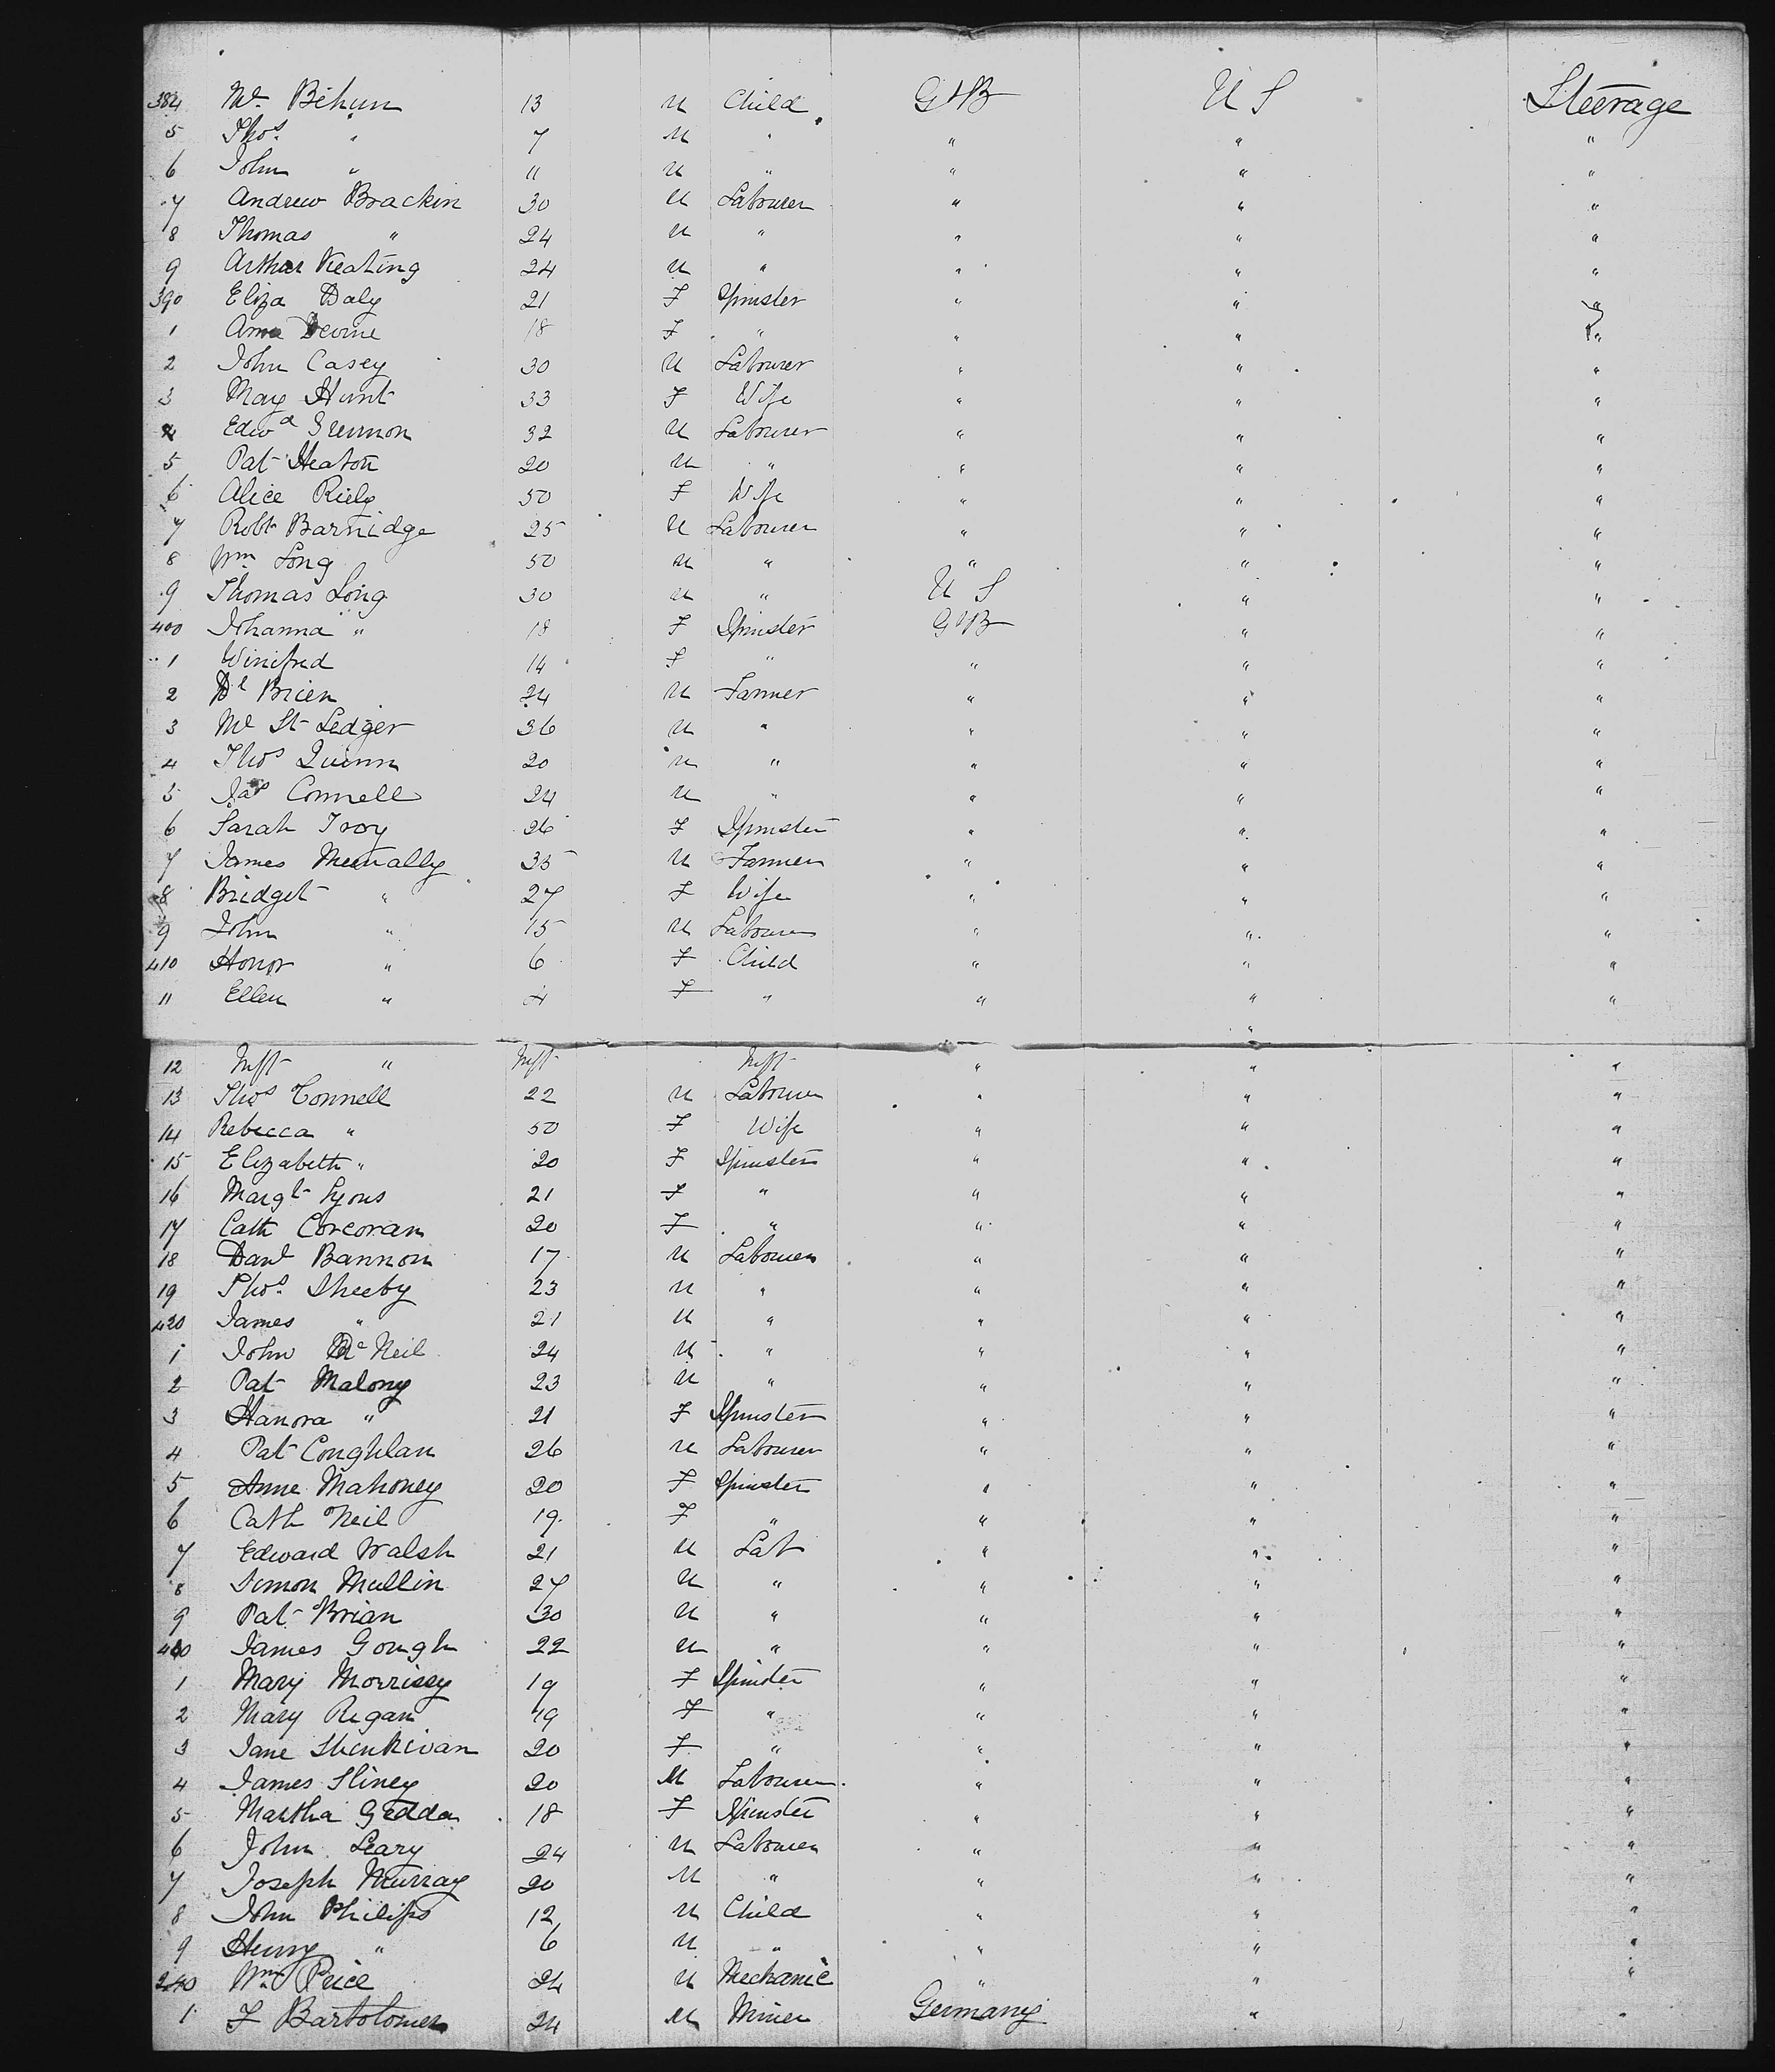 384 Ml. Behun 13 M Child GtB U S Steerage
5 Thos. " 7 M " " " "
6 John " 11 M " " " "
7 Andrew Brackin 30 M Labourer " " "
8 Thomas " 24 M " " " "
9 Arthur Keating 24 M " " " "
390 Eliza Daly 21 F Spinster " " "
1 Devine 18 F " " " "
2 John Casey 30 M Labourer " " "
3 May Hunt 33 F Wife " " "
4 Edwd 32 M Labourer " " "
5 Pat Heaton 20 M " " " "
6 Alice Riely 50 F Wife " " "
7 Robt Barnidge 25 M Labourer " " "
8 Wm. Long 50 M " " " "
9 Thomas Long 30 M " U S " "
400 Johanna " 18 F Spinster GtB " "
1 Winifred 14 F " " " "
2 Dl Brien 24 M Farmer " " "
3 Ml St Ledger 36 M " " " "
4 Thos Quinn 20 M " " " "
5 Jas Connell 24 M " " " "
6 Sarah Troy 26 F Spinster " " "
7 James Mcnally 35 M Farmer " " "
8 Bridget " 27 F Wife " " "
9 John " 15 M Labourer " " "
410 Honor " 6 F Child " " "
11 Ellen " 4 F " " " "
"
12 Inft " Inft Inft " " "
13 Thos Connell 22 M Labourer " " "
14 Rebecca " 50 F Wife " " "
15 Elizabeth " 20 F Spinster " " "
16 Margt Lyons 21 F " " " "
17 Cath Corcoran 20 F " " " "
18 Danl Bannon 17 M Labourer " " "
19 Thos. Sheeby 23 M " " " "
420 James " 21 M " " " "
1 John McNeil 24 M " " " "
2 Pat Malony 23 M " " " "
3 Hanora " 21 F Spinster " " "
4 Pat Coughlan 26 M Labourer " " "
5 Anne Mahoney 20 F Spinster " " "
6 Cath Neil 19 F " " " "
7 Edward Walsh 21 M Lab " " "
8 Simon Mullin 27 M " " " "
9 Pat Brian 30 M " " " "
James Gough 22 M " " " "
1 Mary Morrisey 19 F Spinster " " "
2 Mary Regan 19 F " " " "
3 Jane 20 F " " " "
4 James Sliney 20 M Labourer " " "
5 Martha Gedda 18 F Spinster " " "
6 John Leary 24 M Labourer " " "
7 Joseph Murray 20 M " " " "
8 John Philips 12 M Child " " "
9 Henry " 6 M " " " "
240 Wm Price 24 M Mechanic " " "
1 F Bartolomer 24 M Miner Germany " "